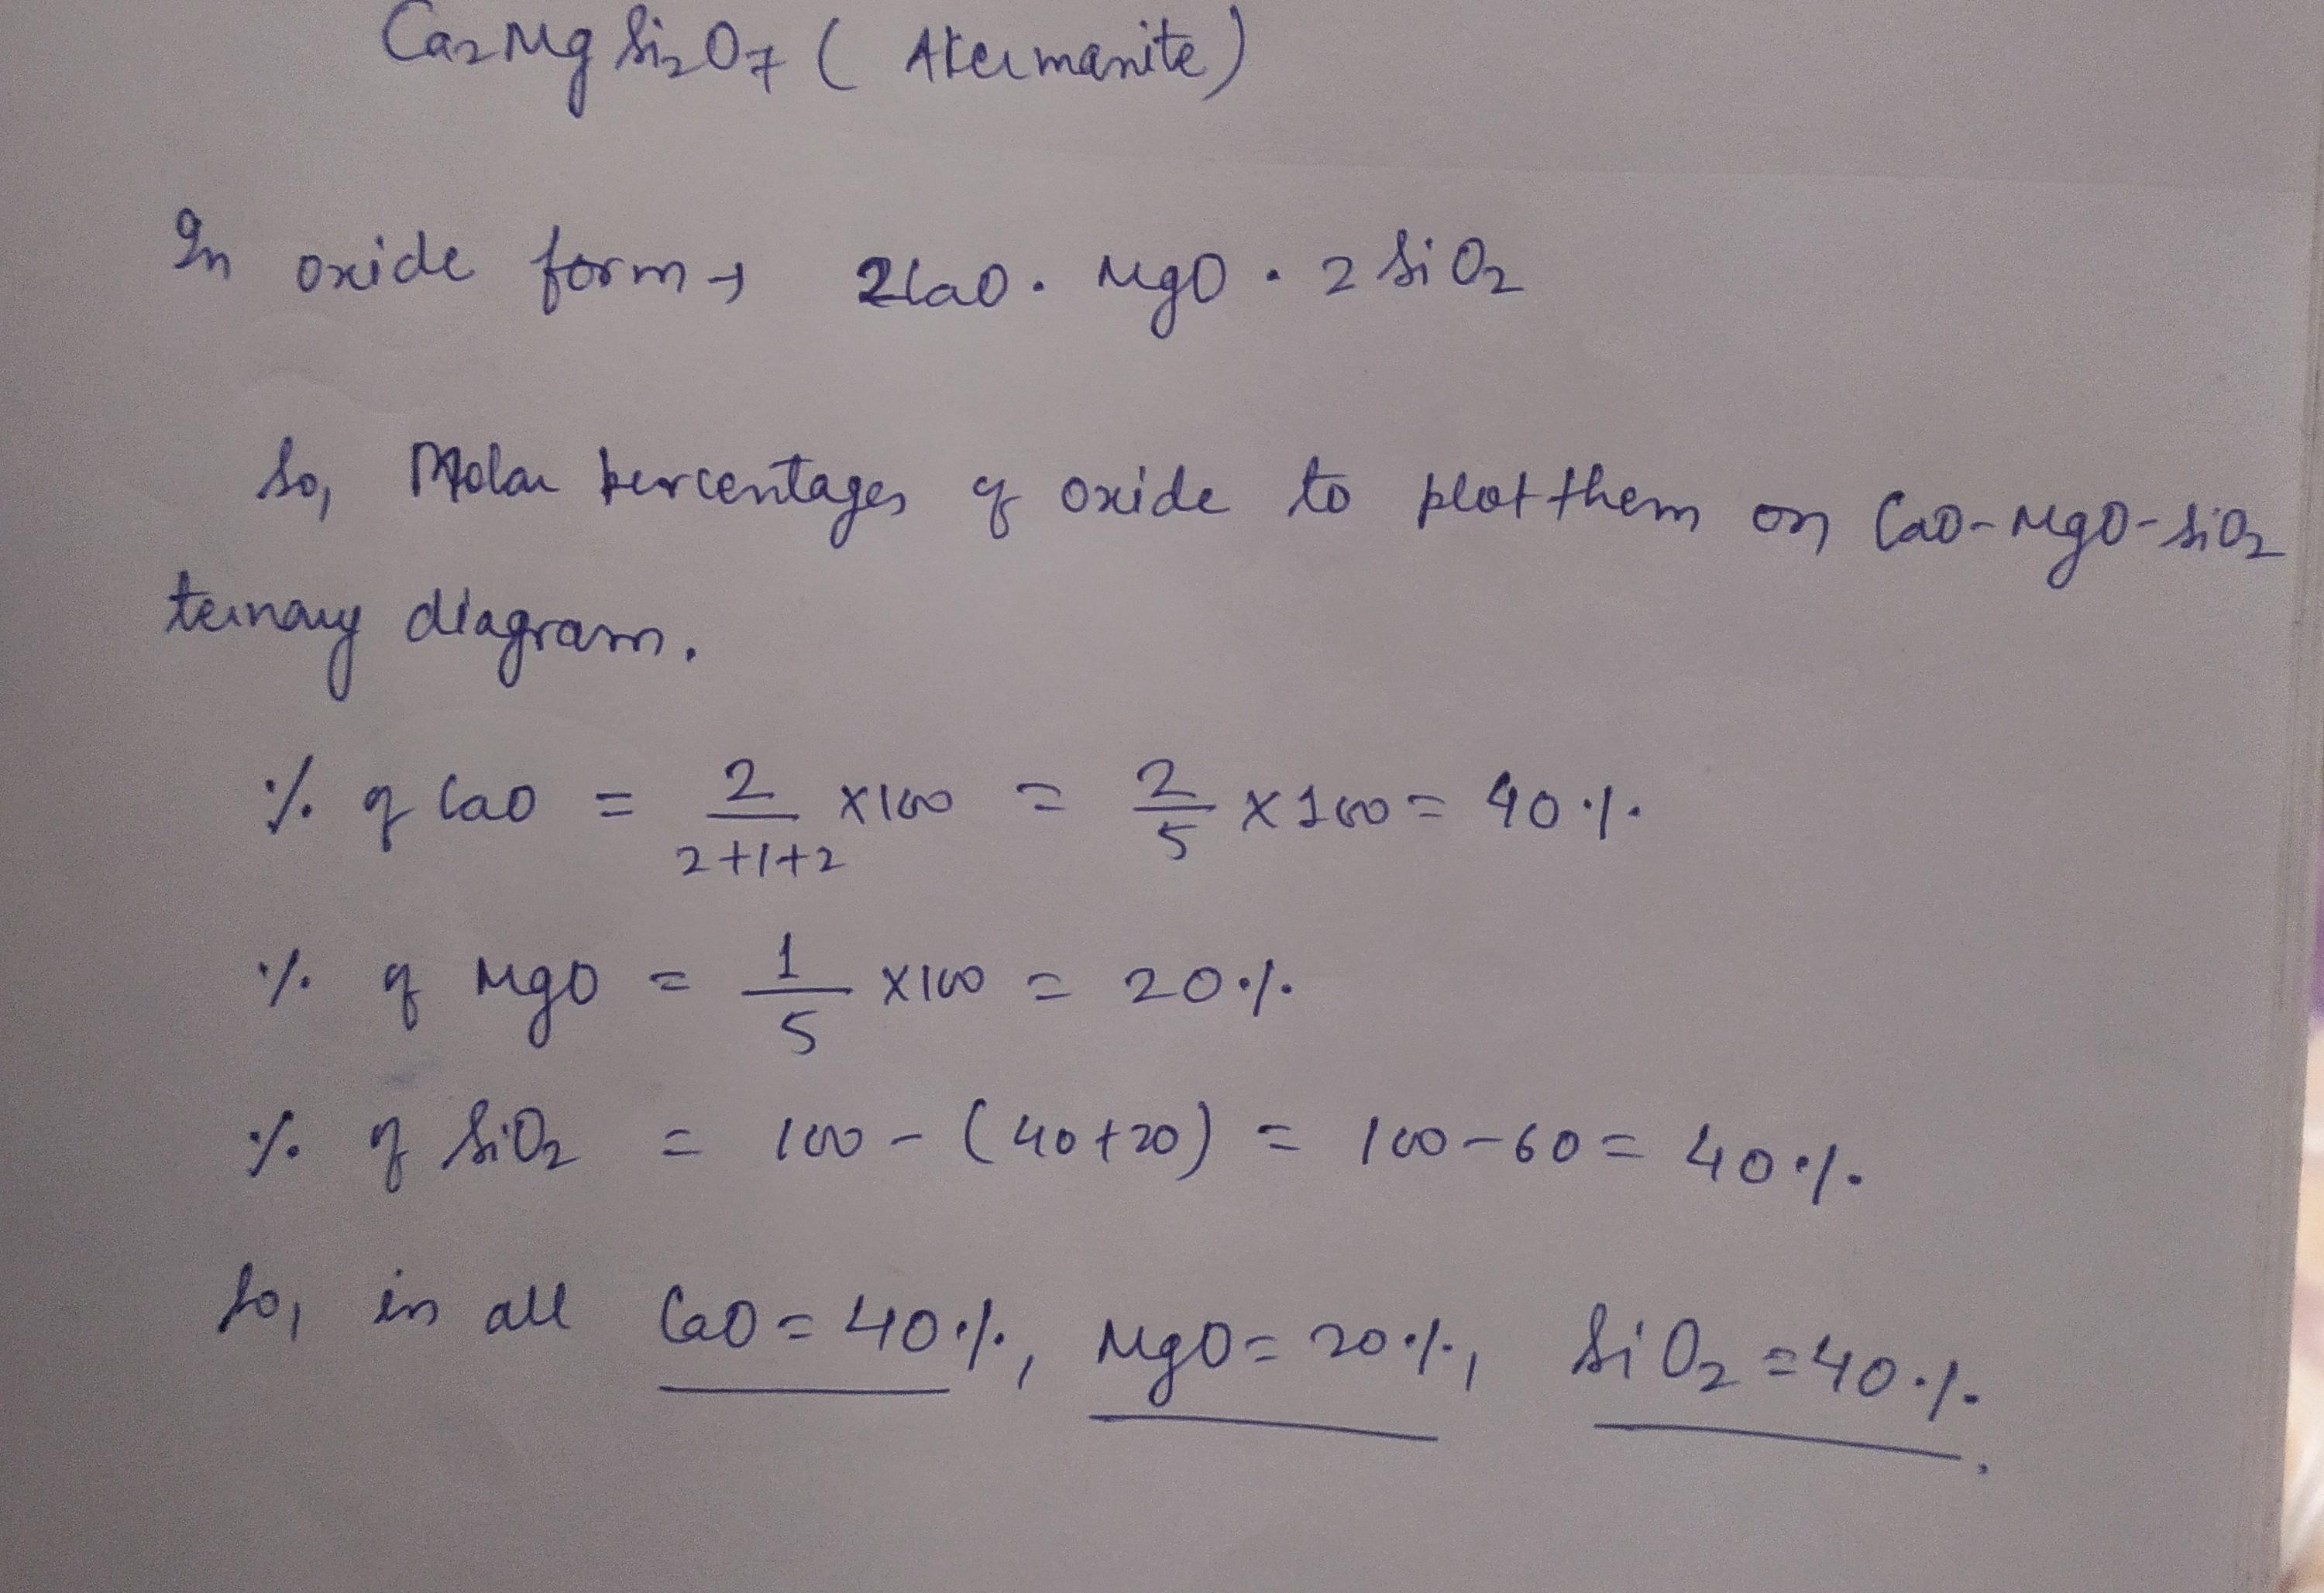 Ca₂MgSi₂O₇ (Akermanite)
In oxide form → 2CaO. MgO . 2SiO₂
So, Molar percentages of oxide to plot them on CaO-MgO-SiO₂
ternary diagram.
% of CaO = 2/(2+1+2) ×100 = 2/5 × 100 = 40%
% of MgO = 1/5 ×100 = 20%
% of SiO₂ = 100 - (40+20) = 100-60 = 40%
So, in all CaO = 40%, MgO = 20%, SiO₂ = 40%.